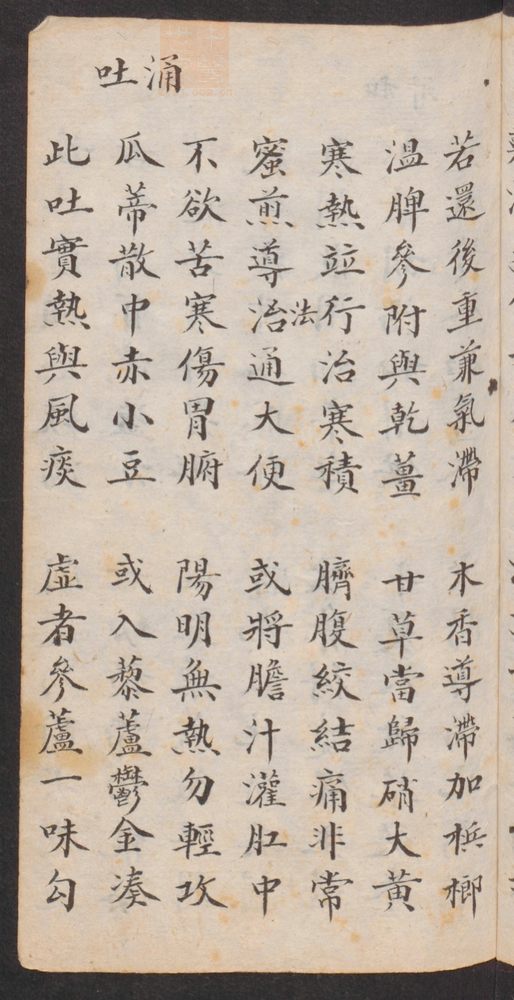 若還後重兼氣滯　木香導滯加梹榔
溫脾參附與乾薑　甘草當歸硝大黃
寒熱竝行治寒積　臍腹絞結痛非常
蜜煎導治法通大便　或將膽汁灌肛中
不欲苦寒傷胃腑　陽明無熱勿輕攻
涌吐
瓜蒂散中赤小豆　或入藜蘆鬱金湊
此吐實熱與風痰　虛者參蘆一味勾